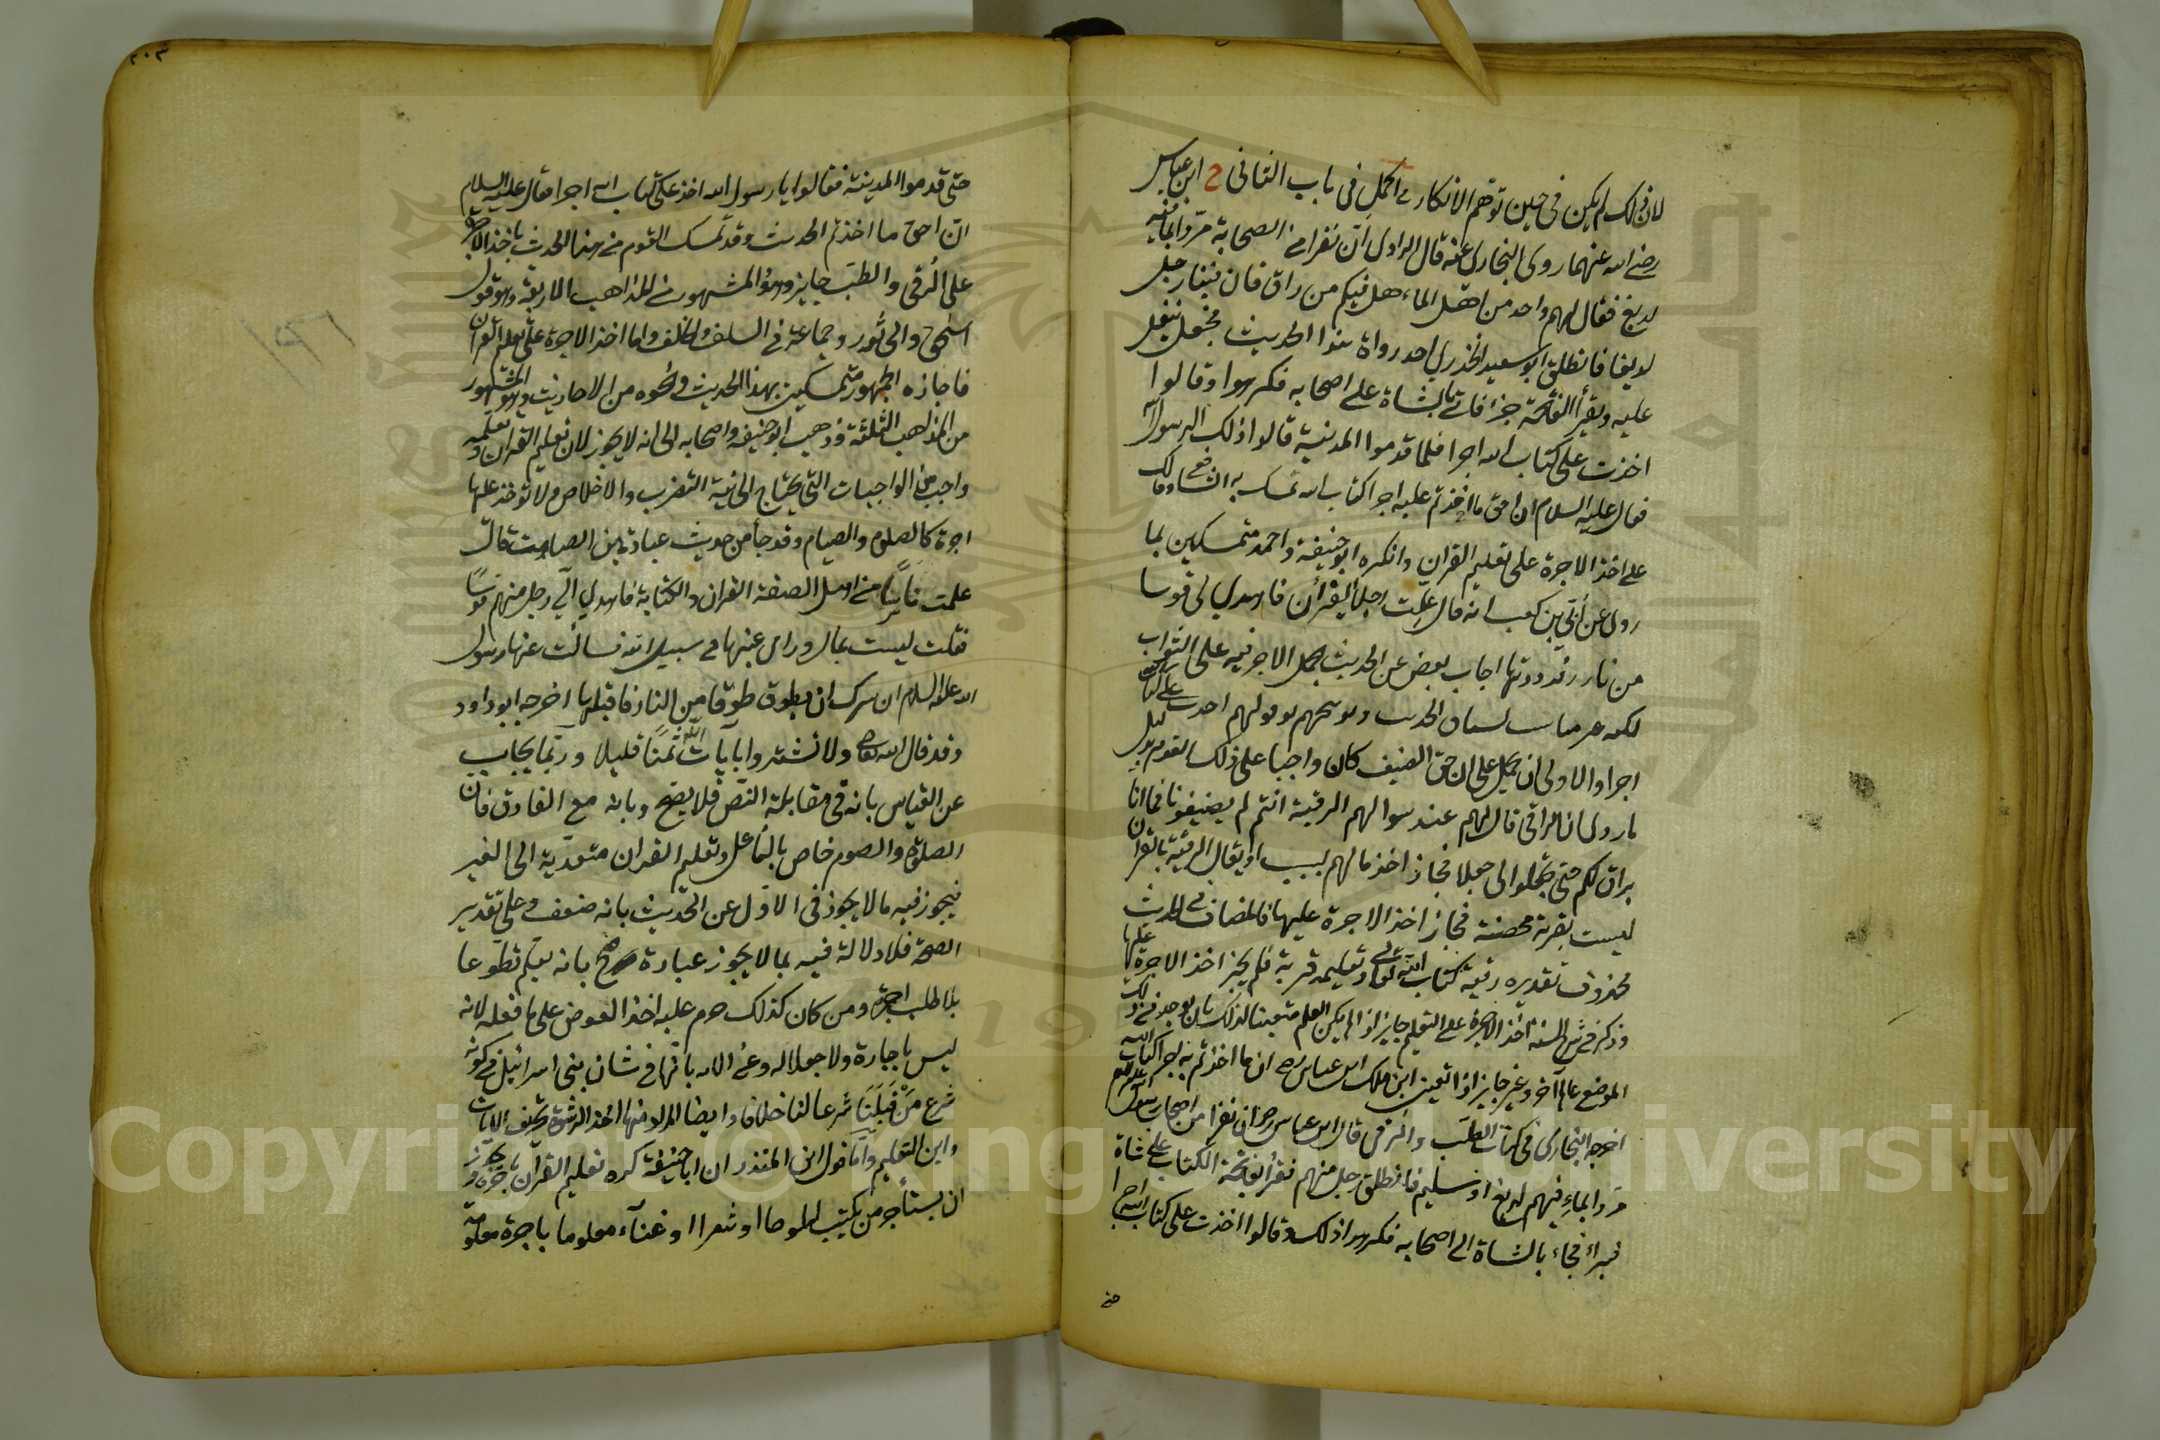 لان ذلك لم يكن فى حين توهم الانكار اكمل فى باب الثانى ابن عباس
رضى الله عنهما روى البخارى عنه قال الراوى ان نفرا من الصحابة مروا بماء فيه
لديغ فقال لهم واحد من اهل الماء هل فيكم من راق فان فينا رجل
لديغا فانطلق ابو سعيد الخدرى احد رواة هذا الحديث فجعل يتفل
عليه ويقرأ الفاتحة فبرأ فاتى بالشاة على اصحابه فكرهوا وقالوا
اخذت على كتاب الله اجرا فلما قدموا المدينة قالوا ذلك لرسول الله
فقال عليه السلام ان احق ما اخذتم عليه اجرا كتاب الله تمسك به الشافعى ومالك
على اخذ الاجرة على تعليم القران وانكره ابو حنيفة واحمد متمسكين بما
روى عن ابى بن كعب انه قال علمت رجلا القرأن فاهدى لى قوسا
من نار فرددتها اجاب بعض عن الحديث بحمل الاجر فيه على الثواب
لكنه الحديث احدت على كتاب الله
اجرا والاولى ان يحمل على ان حق الضيف كان واجبا على ذلك القوم بدليل
ما روى ان الراقى قال لهم عند سوالهم الرقية انتم لم يضيفونا فما انا
براق لكم حتى تجعلوا لى جعلا فجاز اخذ مالهم لسبب او يقال الرقية بالقران
ليست بقربة محضة فجاز اخذ الاجرة عليها فالمضاف فى الحديث
محذوف تقديره رقية كتاب الله تعالى وتعليمه قربة فلم يجز اخذ الاجرة عليها
وذكر فى شرح السنة اخذ الاجرة على التعليم جايز اذا لم يكن المعلم متعينا لذلك بان يوجد فى ذلك
الموضع عالم آخر وغير جايز اذا تعين ابن ملك ابن عباس رض ان ما اخذتم به اجرا كتاب الله
اخرجه البخارى فى كتاب الطب والرقى قال ابن عباس رض ان نفرا من اصحاب رسول الله
مروا بماء فيهم لديغ او سليم فانطلق رجل منهم فقرأ بفاتحة الكتاب على شاة
فبراء فجاء بالشاة الى اصحابه فكرهوا ذلك وقالوا اخذت على كتاب الله اجرا
حتى
٢٠٣
حتى قدموا المدينة فقالوا يا رسول الله اخذ على كتاب الله اجرا فقال عليه السلام
ان احق ما اخذتم الحديث وقد تمسك القوم من هذا الحديث باخذ الاجرة
على الرقى والطب جايز وهو المشهور فى المذاهب الاربعة وهو قول
اسحق وابى ثور وجماعة فى السلف والخلف واما اخذ الاجرة على تعليم القران
فاجازه الجمهور متمسكين بهذا الحديث ونحوه من الاحاديث وهو المشهور
من المذاهب الثلثة وذهب ابو حنيفة واصحابه الى انه لا يجوز لان تعليم القران وتعلمه
واجب من الواجبات التى يحتاج الى نية التقرب والاخلاص ولا تؤخذ عليها
اجرة كالصلوة والصيام وقد جاء من حديث عبادة بن الصامت قال
علمت ناسا من اهل الصفة القران والكتابة فاهدى الى رجل منهم قوسا
فقلت ليست بمال وارمى عنها فى سبيل الله فسالت عنها رسول
الله عليه السلام ان سرك ان يطوق طوقا من النار فاقبلها اخرجه ابو داود
وقد قال الله تعالى ولا تشتروا بآيات الله ثمنا قليلا وربما يجاب
عن القياس بانه فى مقابلة النص فلا يصح وبانه مع الفارق فان
الصلوة والصوم خاص بالفاعل وتعليم القران متعدية الى الغير
فيجوز فيه ما لا يجوز فى الاول عن الحديث بانه ضعف وعلى تقدير
الصحة فلا دلالة فيه بما لا يجوز عبادة صح بانه يعلم تطوعا
بلا طلب اجرة ومن كان كذلك حرم عليه اخذ العوض على ما فعله لانه
ليس باجارة ولا جعالة وعن الاية بانها فى شان بنى اسرائيل فى كونه
شرع من قبلنا شرعا لنا خلافا وايضا المراد منها اخذ الرشوة بتحريف الايات
واين التعليم واما قول ابن المنذر ان ابا حنيفة كره تعليم القرآن باجرة ويجوز
ان يستأجر من يكتب لهلوحا او شعرا او غناء معلوما باجرة معلومة
Copyright © King Saud University